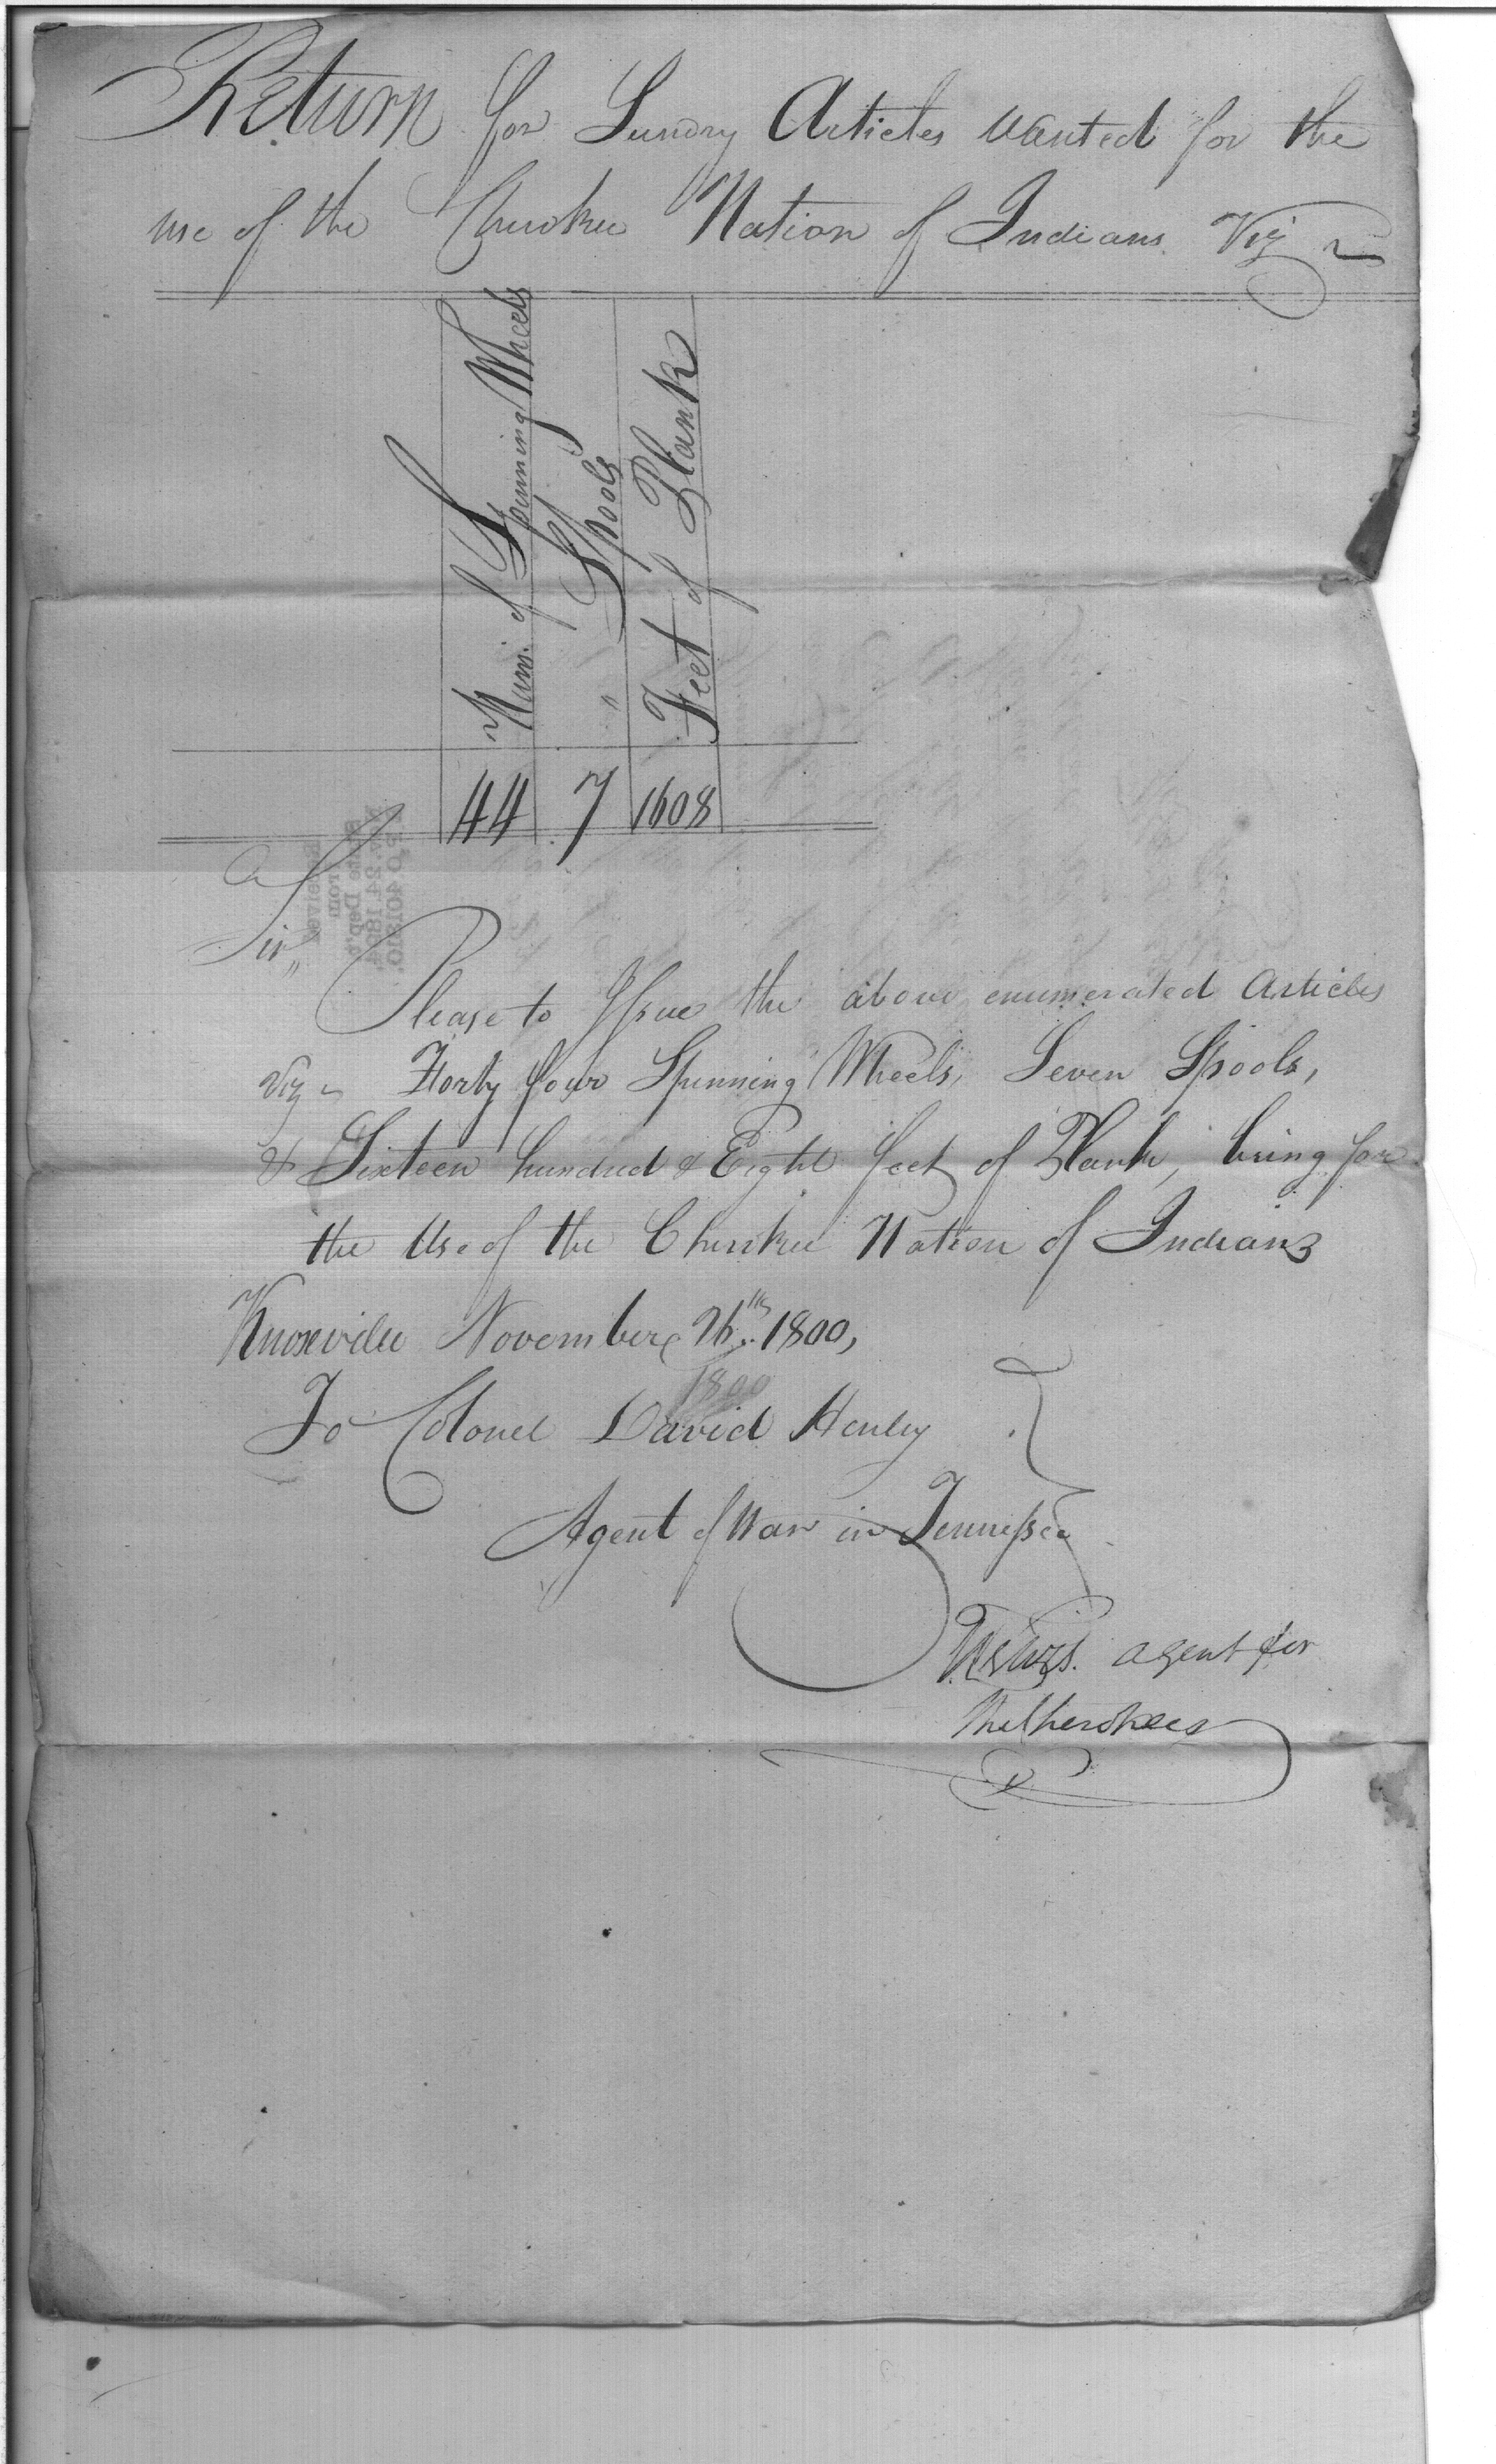 Return for Sundry Articles wanted for the
use of the Cherokee Nation of Indians Viz
Num. of Spinning Wheels
" Spools
Feet of Plank
44 7 1608
Sir,,
Please to Issue the above enumerated Articles
Viz Forty four Spinning Wheels, Seven Spools,
& Sixteen hundred & Eight feet of Plank, being for
the Use of the Cherokee Nation of Indians
Knoxville November 1800,
1800
To Colonel David Henley
Agent of War in Tennessee
agent for
the Cherokees